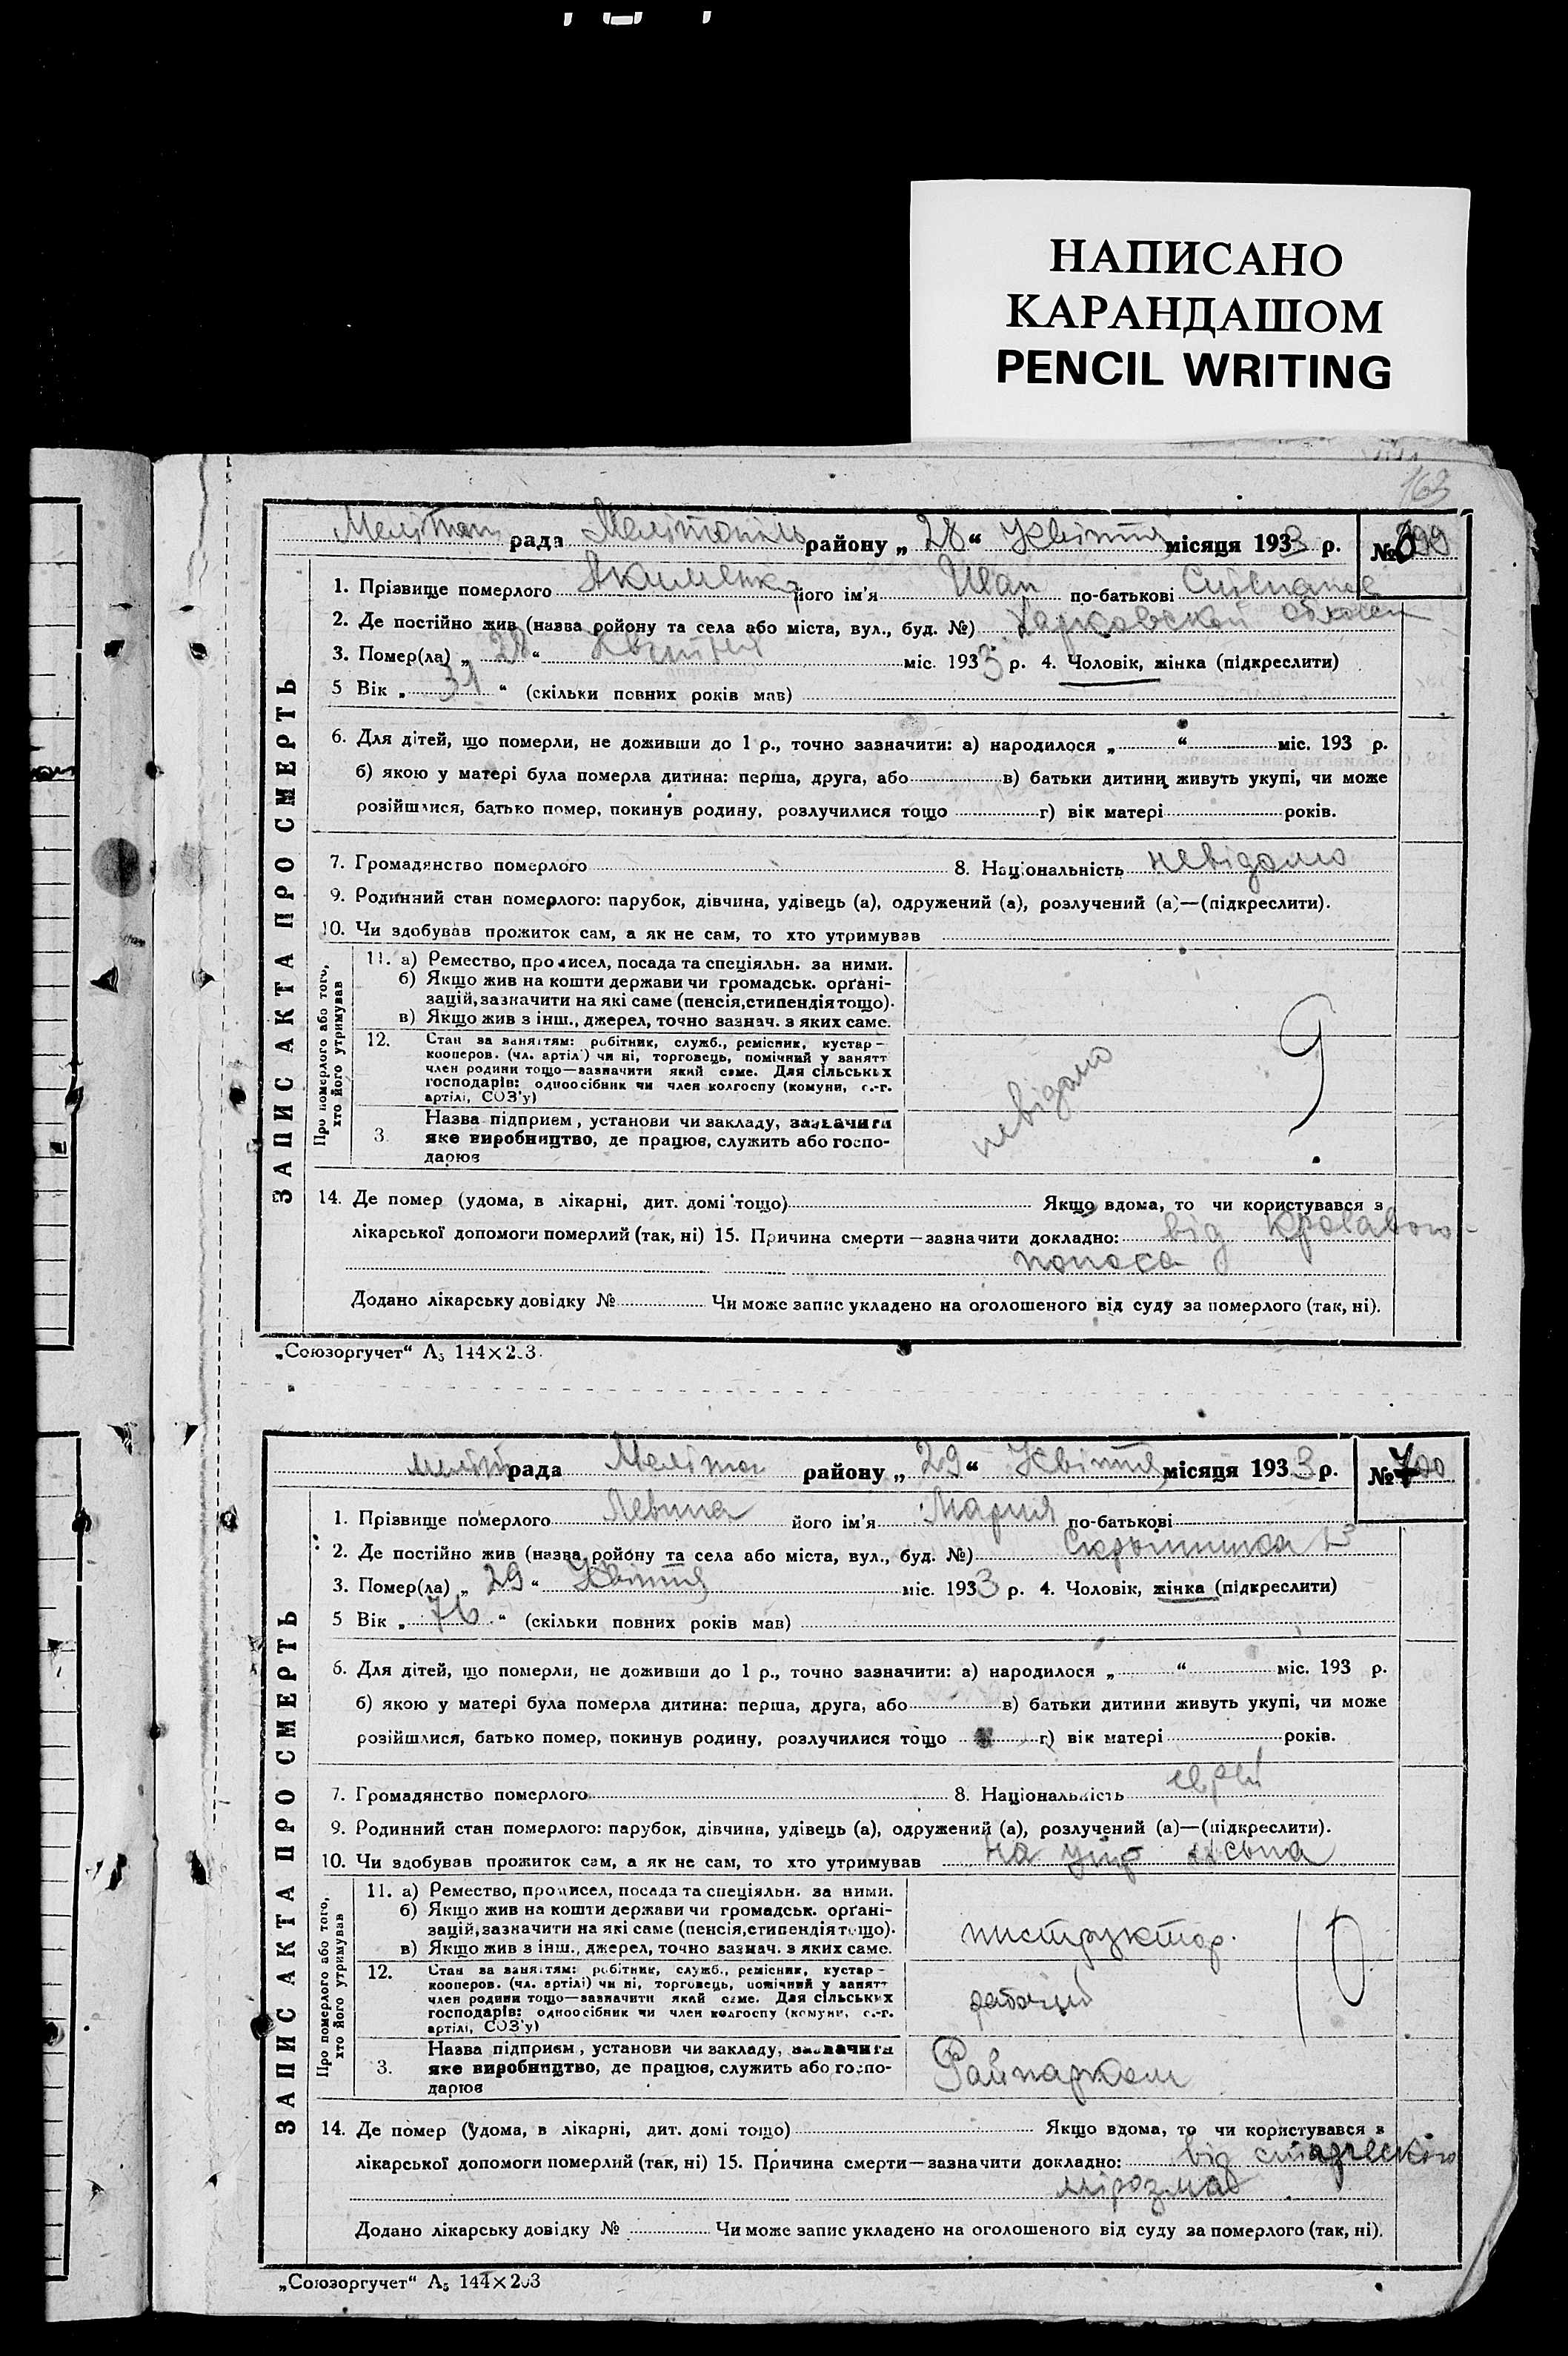 НАПИСАНО
КАРАНДАШОМ
PENCIL WRITING
163
рада Мелітопіль району „ 28 “ Квітня місяця 193 3 р. № 699
ЗАПИС АКТА ПРО СМЕРТЬ
1. Прізвище померлого Акименко його ім'я Иван по-батькові
2. Де постійно жив (назва ройону та села або міста, вул., буд. №) Харковской
3. Помер(ла) „ 28 “ Квітня міс. 193 3 р. 4. Чоловік, жінка (підкреслити)
5 Вік „ 31 “ (скільки повних років мав)
6. Для дітей, що померли, не доживши до 1 р., точно зазначити: а) народилося „ “ міс. 193 р.
б) якою у матері була померла дитина: перша, друга, або в) батьки дитини живуть укупі, чи може
розійшлися, батько помер, покинув родину, розлучилися тощо г) вік матері років.
7. Громадянство померлого 8. Національність невідомо
9. Родинний стан померлого: парубок, дівчина, удівець (а), одружений (а), розлучений (а)—(підкреслити).
10. Чи здобував прожиток сам, а як не сам, то хто утримував
Про померлого або того, хто його утримував
11. а) Ремество, промисел, посада та спеціяльн. за ними.
б) Якщо жив на кошти держави чи громадськ. орґані-
зацій, зазначити на які саме (пенсія, стипендія тощо).
в) Якщо жив з інш., джерел, точно зазнач. з яких саме.
12. Стан за заняттям: робітник, служб., ремісник, кустар—
кооперов. (чл. артілі) чи ні, торговець, помічний у занятт
член родини тощо—зазначити який саме. Для сільських
господарів: одноосібник чи член колгоспу (комуни, с.-г.
артілі, СОЗ'у)
невідомо
9
3. Назва підприєм, установи чи закладу, зазначити
яке виробництво, де працює, служить або госпо-
дарює
14. Де помер (удома, в лікарні, дит. домі тощо) Якщо вдома, то чи користувався з
лікарської допомоги померлий (так, ні) 15. Причина смерти—зазначити докладно: від кровавого
поноса
Додано лікарську довідку № Чи може запис укладено на оголошеного від суду за померлого (так, ні).
„Союзоргучет“ А5 144×203.
рада Меліто району „ 29 “ Квітня місяця 193 3 р. № 700
ЗАПИС АКТА ПРО СМЕРТЬ
1. Прізвище померлого Левина його ім'я Мария по-батькові
2. Де постійно жив (назва ройону та села або міста, вул., буд. №)
3. Помер(ла) „ 29 “ Квітня міс. 193 3 р. 4. Чоловік, жінка (підкреслити)
5 Вік „ 76 “ (скільки повних років мав)
6. Для дітей, що померли, не доживши до 1 р., точно зазначити: а) народилося „ “ міс. 193 р.
б) якою у матері була померла дитина: перша, друга, або в) батьки дитини живуть укупі, чи може
розійшлися, батько помер, покинув родину, розлучилися тощо г) вік матері років.
7. Громадянство померлого 8. Національність еврей
9. Родинний стан померлого: парубок, дівчина, удівець (а), одружений (а), розлучений (а)—(підкреслити).
10. Чи здобував прожиток сам, а як не сам, то хто утримував на утр сына
Про померлого або того, хто його утримував
11. а) Ремество, промисел, посада та спеціяльн. за ними.
б) Якщо жив на кошти держави чи громадськ. орґані-
зацій, зазначити на які саме (пенсія, стипендія тощо).
в) Якщо жив з інш., джерел, точно зазнач. з яких саме.
инструктор.
10
12. Стан за заняттям: робітник, служб., ремісник, кустар—
кооперов. (чл. артілі) чи ні, торговець, помічний у занятт
член родини тощо—зазначити який саме. Для сільських
господарів: одноосібник чи член колгоспу (комуни, с.-г.
артілі, СОЗ'у)
рабочий
3. Назва підприєм, установи чи закладу, зазначити
яке виробництво, де працює, служить або госпо-
дарює
Райпарком
14. Де помер (удома, в лікарні, дит. домі тощо) Якщо вдома, то чи користувався з
лікарської допомоги померлий (так, ні) 15. Причина смерти—зазначити докладно: від старческого
мірозма
Додано лікарську довідку № Чи може запис укладено на оголошеного від суду за померлого (так, ні).
„Союзоргучет“ А5 144×203